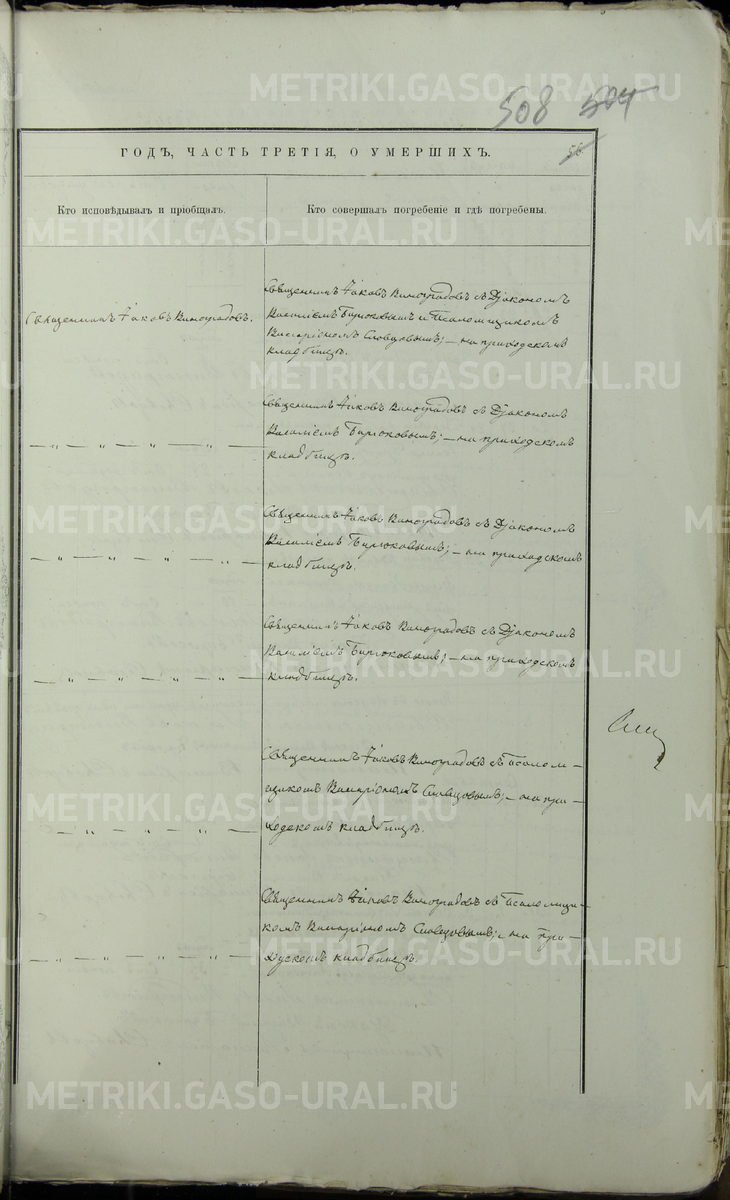 508 504
ГОДЪ, ЧАСТЬ ТРЕТІЯ, О УМЕРШИХЪ.
56
Кто исповѣдывалъ и пріобщалъ.
Кто совершалъ погребеніе и гдѣ погребены.
Священникъ Іаковъ Виноградовъ.
Священникъ Іаковъ Виноградовъ съ Діакономъ
Василіемъ Бирюковымъ и Псаломщикомъ
Иларіономъ Словцовымъ; – на приходскомъ
кладбищѣ.
Священникъ Іаковъ Виноградовъ съ Діакономъ
Василіемъ Бирюковымъ; – на приходскомъ
кладбищѣ.
— „ — „ — „ — „ —
Священникъ Іаковъ Виноградовъ съ Діакономъ
Василіемъ Бирюковымъ; – на приходскомъ
кладбищѣ.
— „ — „ — „ — „ —
Священникъ Іаковъ Виноградовъ съ Діакономъ
Василіемъ Бирюковымъ; – на приходскомъ
кладбищѣ.
— „ — „ — „ — „ —
Священникъ Іаковъ Виноградовъ съ Псалом-
щикомъ Иларіономъ Словцовымъ; – на при-
ходскомъ кладбищѣ.
— „ — „ — „ — „ —
Священникъ Іаковъ Виноградовъ съ Псаломщи-
комъ Иларіономъ Словцовымъ; – на при-
ходскомъ кладбищѣ.
— „ — „ — „ — „ —
METRIKI.GASO-URAL.RU